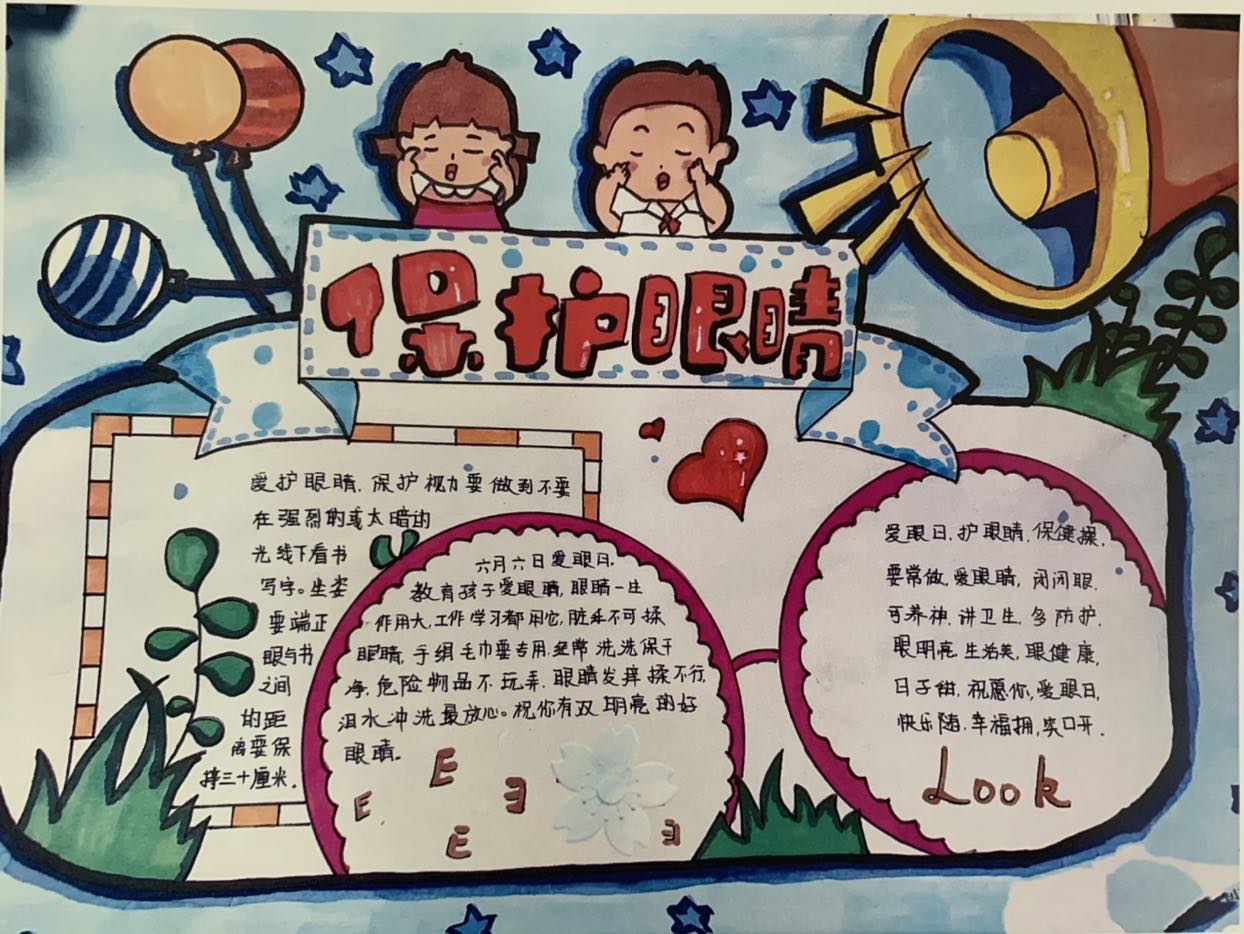 保护眼睛
爱护眼睛.保护视力要做到不要
在强烈的或太暗的
光线下看书
写字。坐姿
要端正
眼与书
之间
的距
离要保
持三十厘米.
六月六日爱眼日.
教育孩子爱眼睛,眼睛一生
作用大,工作学习都用它,脏手不可揉
眼睛,手绢毛巾要专用.经常洗洗保干
净,危险物品不玩弄.眼睛发痒揉不行,
泪水冲洗最放心。祝你有双明亮的好
眼睛。
E
E
E
爱眼日,护眼睛,保健操,
要常做,爱眼睛,闭闭眼.
可养神,讲卫生.多防护.
眼明亮.生活美,眼健康,
日子甜.祝愿你,爱眼日,
快乐随.幸福拥,笑口开.
Look